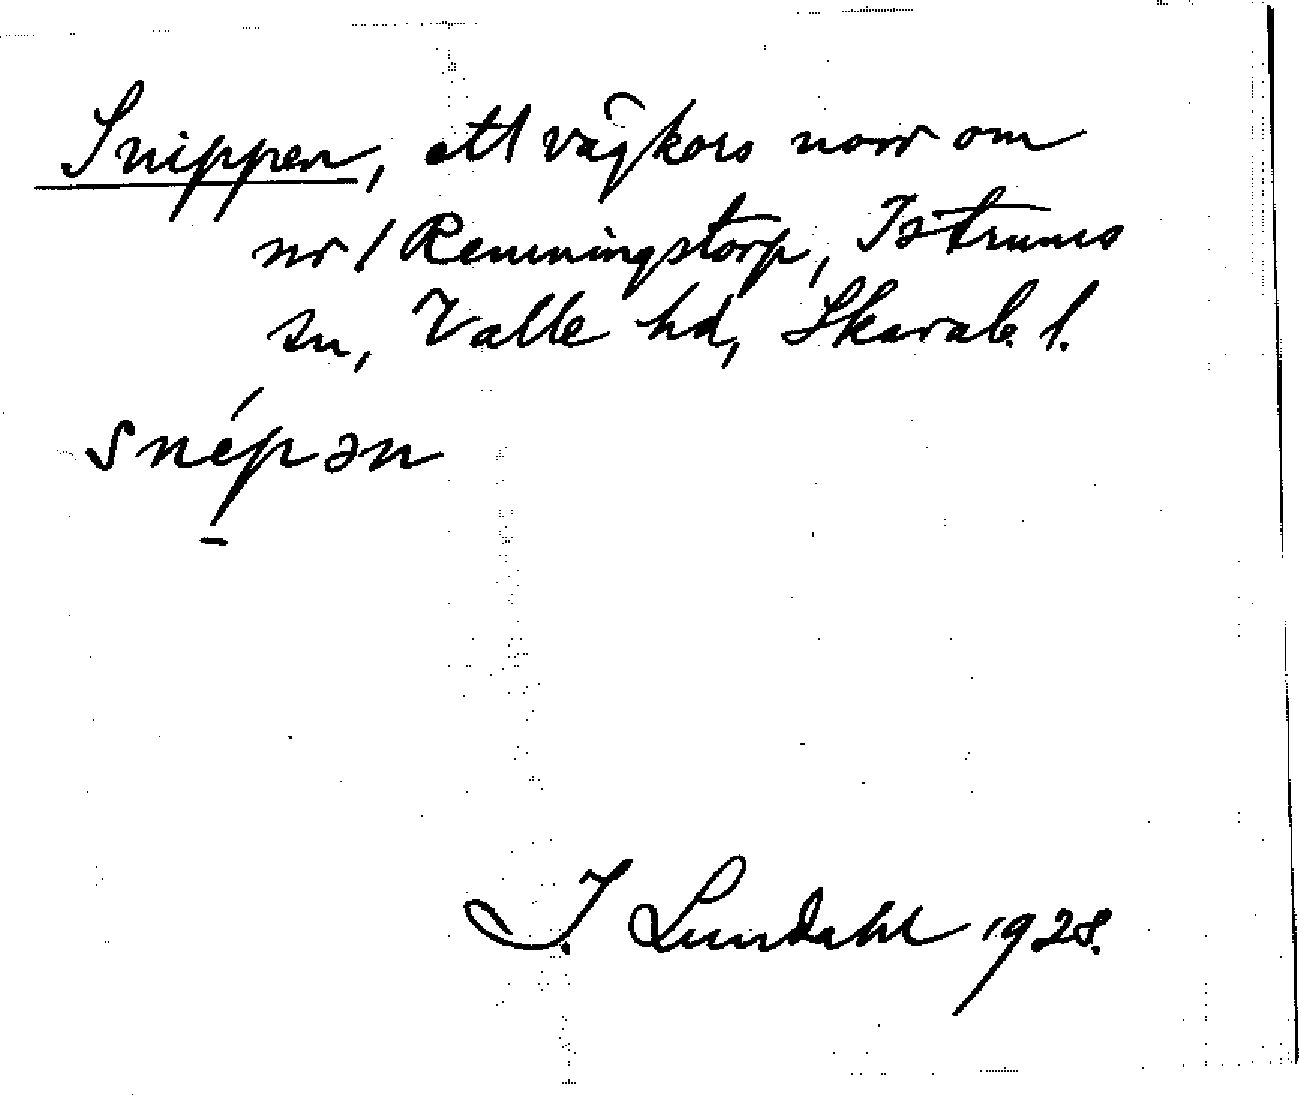 Snippen, ett vägkors norr om
nr 1 Remmingstorp, Istrums
sn, Valle hd, Skarab. l.
snépən
I. Lundahl 1928.